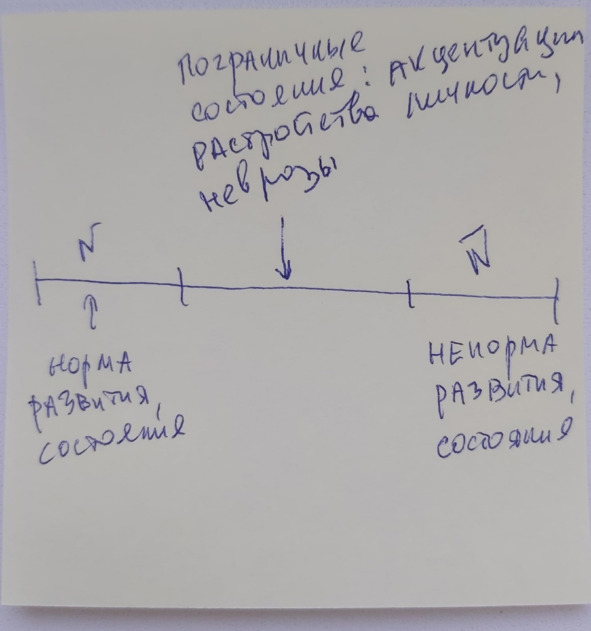 пограничные
состояния: акцентуации
растройства личности,
неврозы
N
N̅
норма
развития,
состояния
ненорма
развития,
состояния